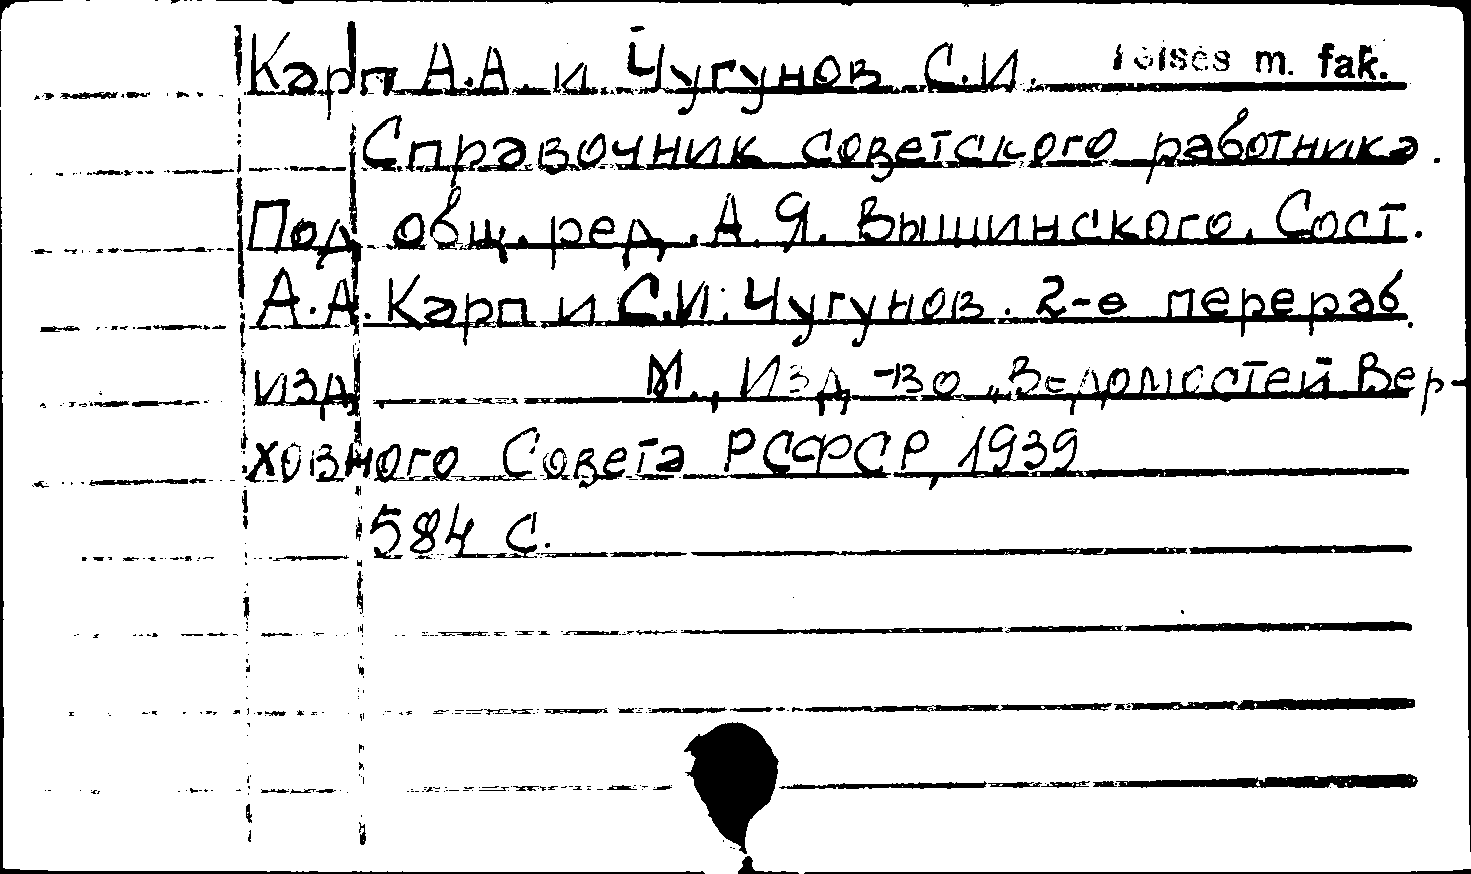 Карп А.А. и Чугунов С.И. Teisės m. fak.
Справочник советского работника.
Под общ. ред. А.Я. Вышинского. Сост.
А.А. Карп и С.И. Чугунов. 2-е перераб.
изд. М., Изд-во „Ведомостей Вер-
ховного Совета РСФСР, 1939
584 с.